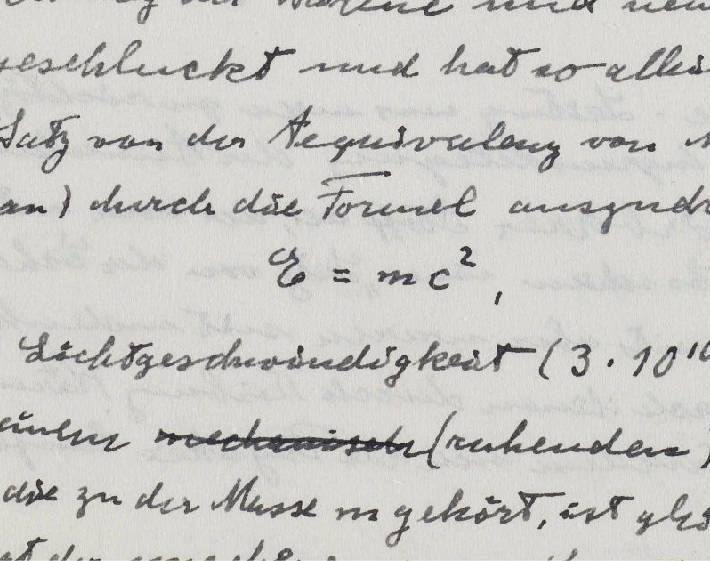 und
geschluckt und hat so allei
Satz von der Aequivalenz von M
an) durch die Formel ausgedr
E = mc²,
Lichtgeschwindigkeit (3 . 10¹⁰
einem mechanisch (ruhenden)
die zu der Masse m gehört, ist gle